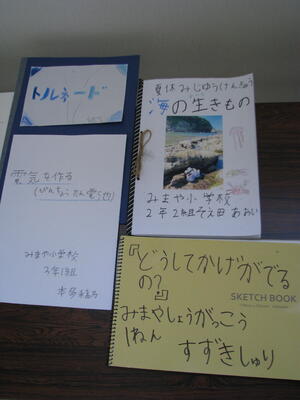 トルネード
電気を作る
(びんちょうたん電池)
みまや小学校
3年1組
夏休みじゆうけんきゅう
海の生きもの
みまや小学校
2年2組そえ田 あおい
『どうしてかげがでる
の?』
SKETCH BOOK
みまやしょうがっこう
1ねん
すずきしゅり